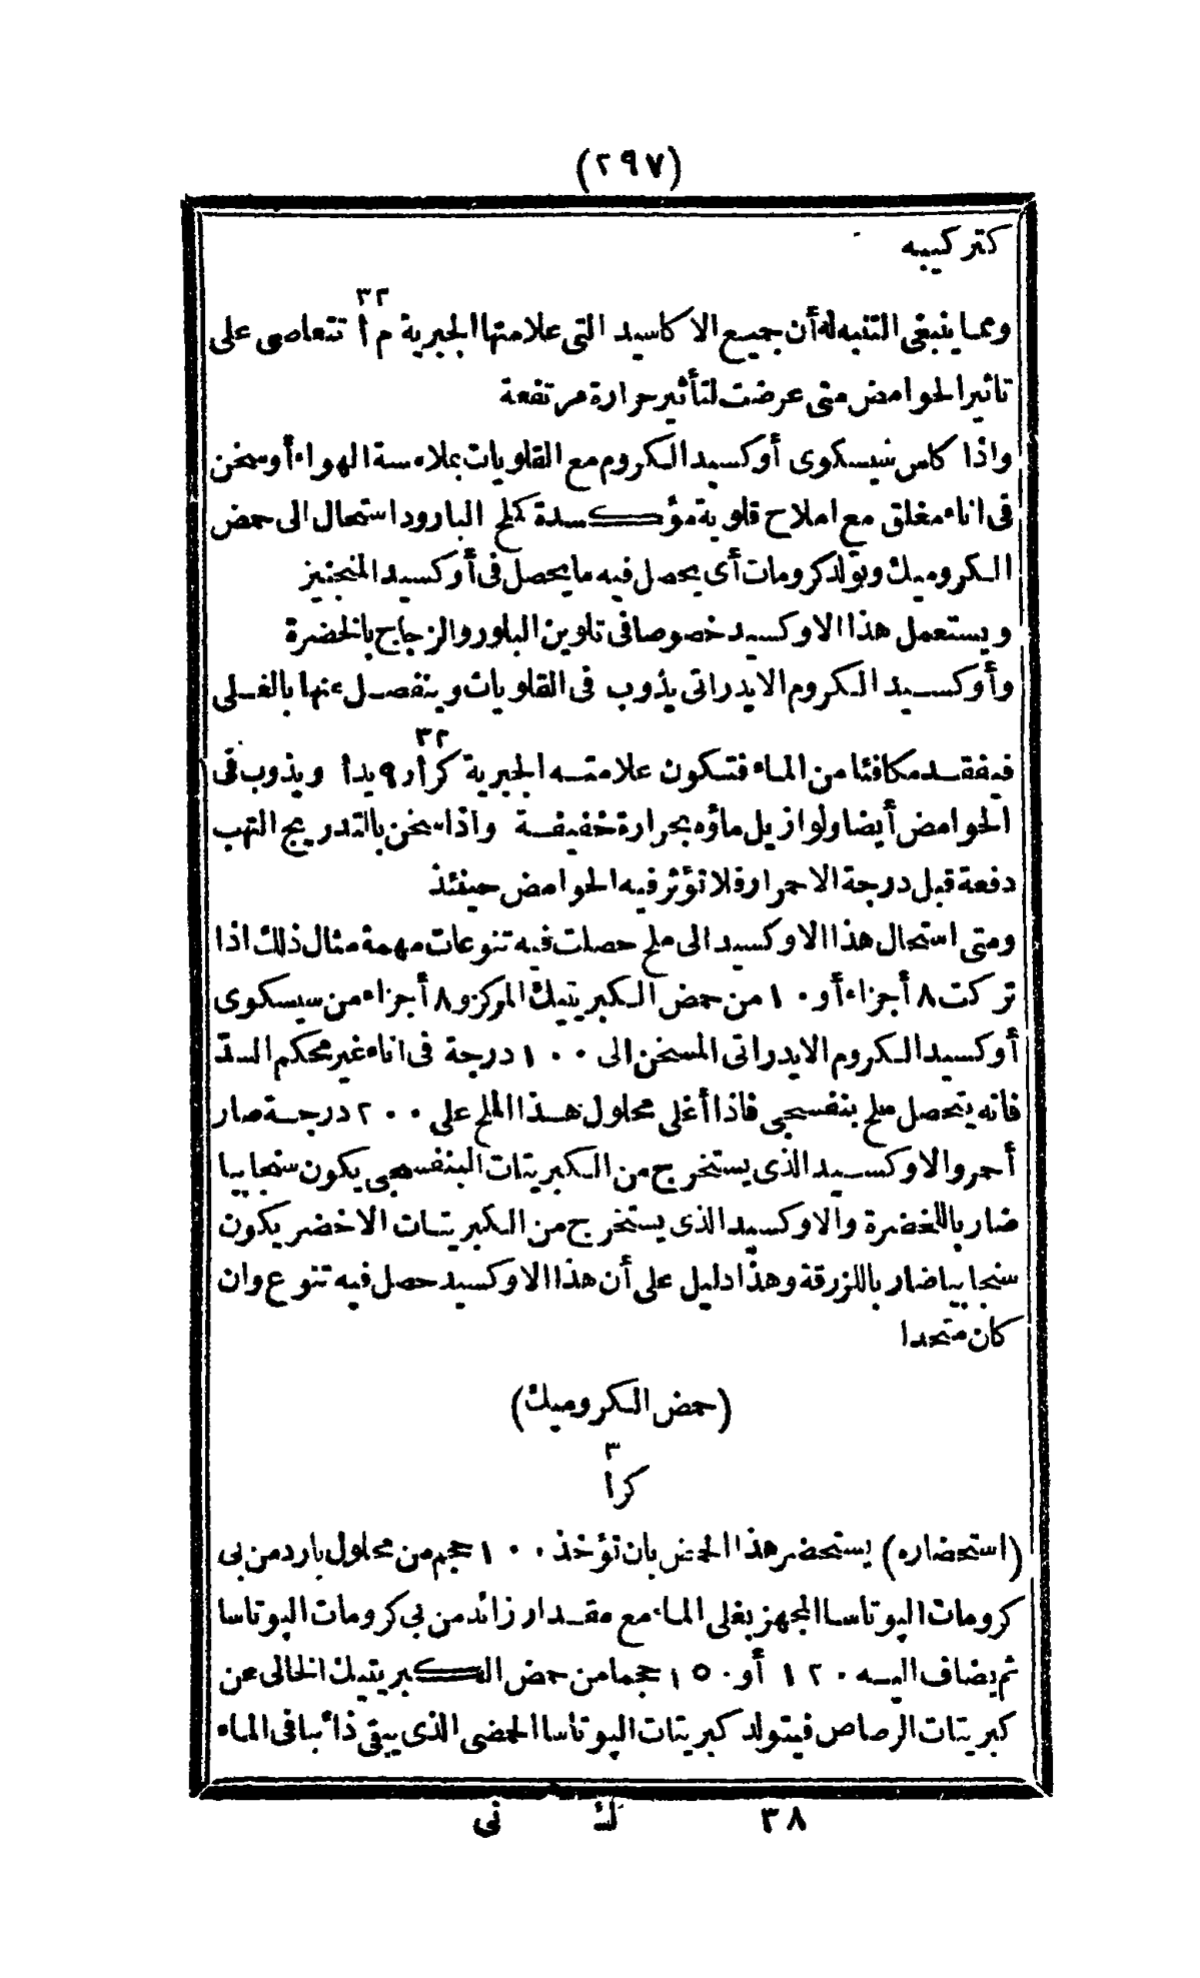 (٢٩٧)
كتركيبه
٣٢
ومما ينبغى التنبه له أن جميع الاكاسيد التى علامتها الجبرية م أ تتعاصى على
تاثير الحوامض متى عرضت لتأثير حرارة مرتفعة
واذا كلس سيسكوى أوكسيد الكروم مع القلويات بملامسة الهواء أو سخن
فى اناء مغلق مع املاح قلوية مؤكسدة كملح البارود استحال الى حمض
الكروميك وتولد كرومات أى يحصل فيه ما يحصل فى أوكسيد المنجنيز
ويستعمل هذا الاوكسيد خصوصا فى تلوين البلور والزجاج بالخضرة
وأوكسيد الكروم الايدراتى يذوب فى القلويات وينفصل عنها بالغلى
٣٢
فيفقد مكافئا من الماء فتكون علامته الجبرية كرأر٩يدأ ويذوب فى
الحوامض أيضا ولو ازيل ماؤه بحرارة خفيفة واذا سخن بالتدريج التهب
دفعة قبل درجة الاحمرار فلا تؤثر فيه الحوامض حينئذ
ومتى استحال هذا الاوكسيد الى ملح حصلت فيه تنوعات مهمة مثال ذلك اذا
تركت ٨ أجزاء أو ١٠ من حمض الكبريتيك المركز و ٨ أجزاء من سيسكوى
أوكسيد الكروم الايدراتى المسخن الى ١٠٠ درجة فى اناء غير محكم السدّ
فانه يتحصل ملح بنفسجى فاذا أغلى محلول هذا الملح على ٢٠٠ درجة صار
أحمر والاوكسيد الذى يستخرج من الكبريتات البنفسجى يكون سنجابيا
ضاربا للخضرة والاوكسيد الذى يستخرج من الكبريتات الاخضر يكون
سنجابيا ضاربا للزرقة وهذا دليل على أن هذا الاوكسيد حصل فيه تنوع وان
كان متحدا
(حمض الكروميك)
٣
كرأ
(استحضاره) يستحضر هذا الحمض بان تؤخذ ١٠٠ حجم من محلول بارد من بى
كرومات الپوتاسا المجهز بغلى الماء مع مقدار زائد من بى كرومات الپوتاسا
ثم يضاف اليه ١٢٠ أو ١٥٠ حجما من حمض الكبريتيك الخالى عن
كبريتات الرصاص فيتولد كبريتات الپوتاسا الحمضى الذى يبقى ذائبا فى الماء
٣٨ ك نى